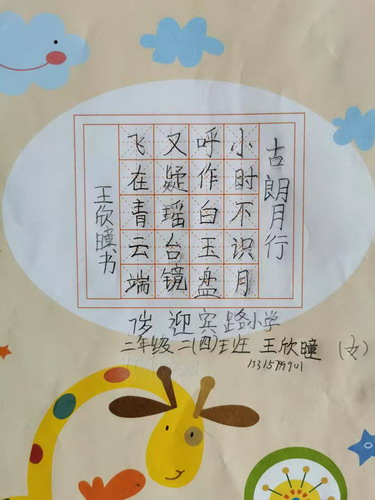 古朗月行
小时不识月
呼作白玉盘
又疑瑶台镜
飞在青云端
王欣瞳书
迎宾路小学
二年级二(四)班 王欣瞳 (女)